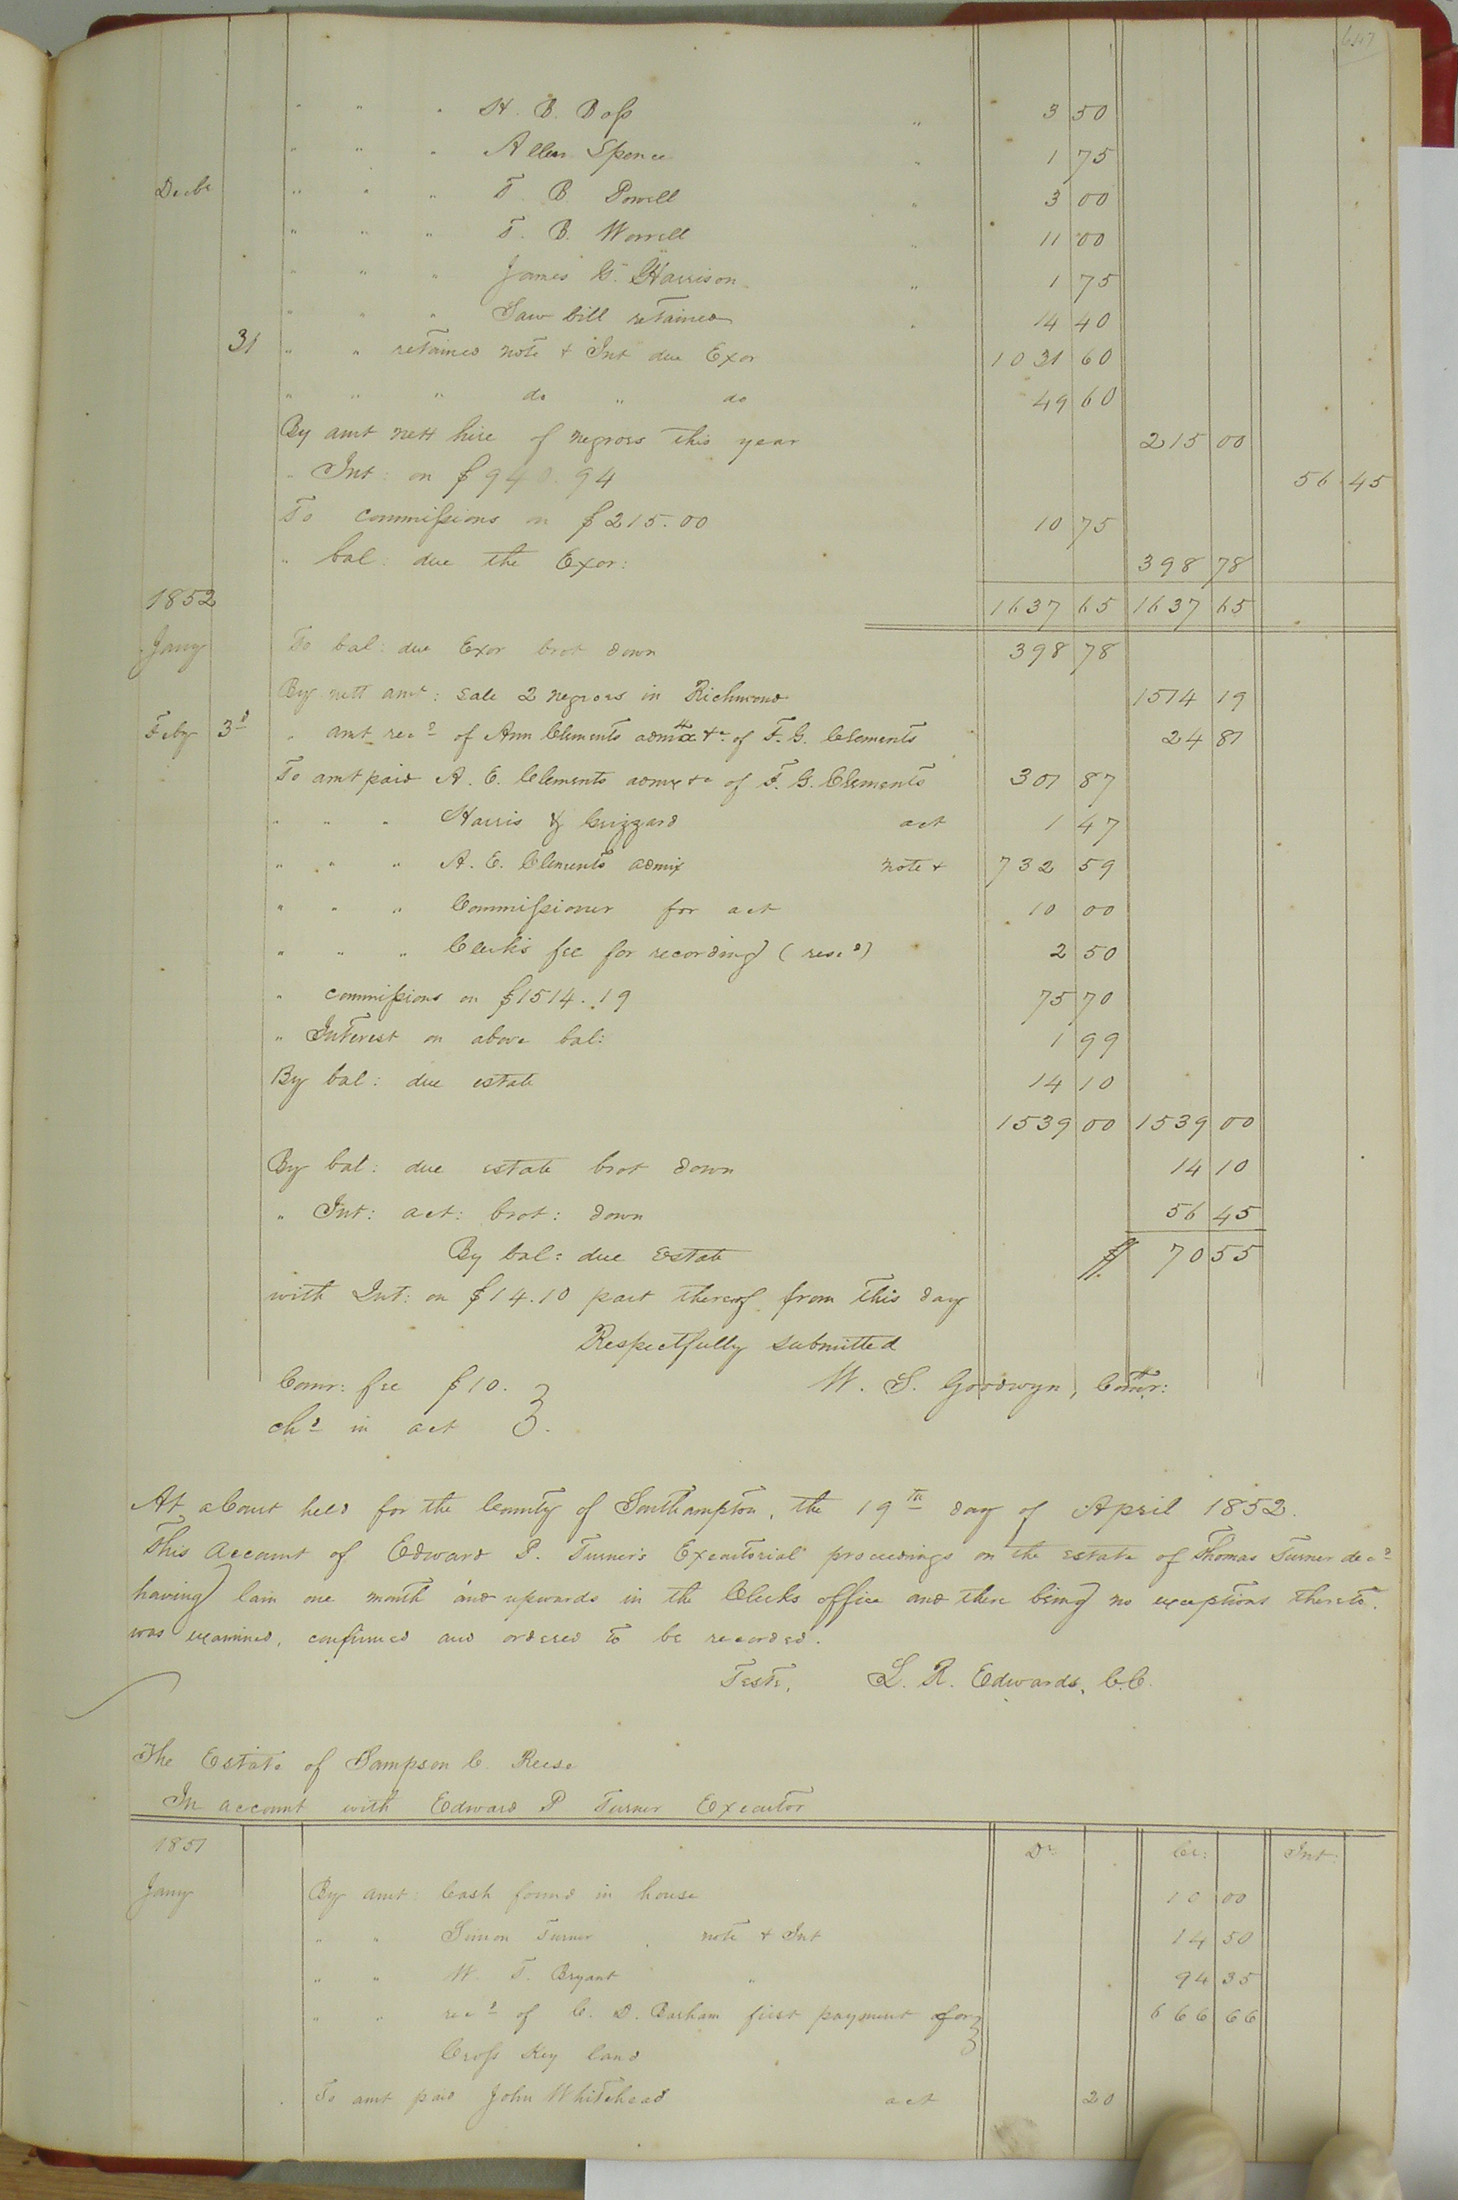 647
" " " H. B. Boss " 3 50
" " " Allen Spence " 1 75
Decbr " " " T. B. Powell " 3 00
" " " T. B. Worrell " 11 00
" " " James G. Harrison " 1 75
" " " Saw bill retained " 14 40
31 " " retained note & Int due Exor 1031 60
" " " do " do 49 60
By amt nett hire of negroes this year 215 00
" Int: on $940.94 56 45
To commissions on $215.00 10 75
" bal: due the Exor: 398 78
1852 1637 65 1637 65
Jany To bal: due Exor brot down 398 78
By nett amt: sale 2 negroes in Richmond 1514 19
Feby 3d " amt recd of Ann Clements admx &c of F. G. Clements 24 81
To amt paid A. E. Clements admx &c of F. G. Clements 301 87
" " " Harris & Grizzard act 1 47
" " " A. E. Clements admx note & 732 59
" " " Commissioner for act 10 00
" " " Clerk's fee for recording (resd) 2 50
" commissions on $1514.19 75 70
" Interest on above bal: 1 99
By bal: due estate 14 10
1539 00 1539 00
By bal: due estate brot down 14 10
" Int: act: brot: down 56 45
By bal: due Estate $ 70 55
with Int: on $14.10 part thereof from this day
Respectfully submitted
Comr: fee $10. W. S. Goodwyn, Comr:
chd in act
At a Court held for the County of Southampton, the 19th day of April 1852.
This Account of Edward P. Turner's Executorial proceedings on the estate of Thomas Turner decd
having lain one month and upwards in the Clerks office and there being no exceptions thereto.
was examined, confirmed and ordered to be recorded.
Teste, L. R. Edwards, C.C.
The Estate of Sampson C. Reese
In account with Edward P Turner Executor
1851 Dr Cr: Int:
Jany By amt Cash found in house 10 00
" " Simon Turner note & Int 14 50
" " W. T. Bryant " 94 35
" " recd of C. D. Barham first payment for 666 66
Cross Key land
To amt paid John Whitehead act 20